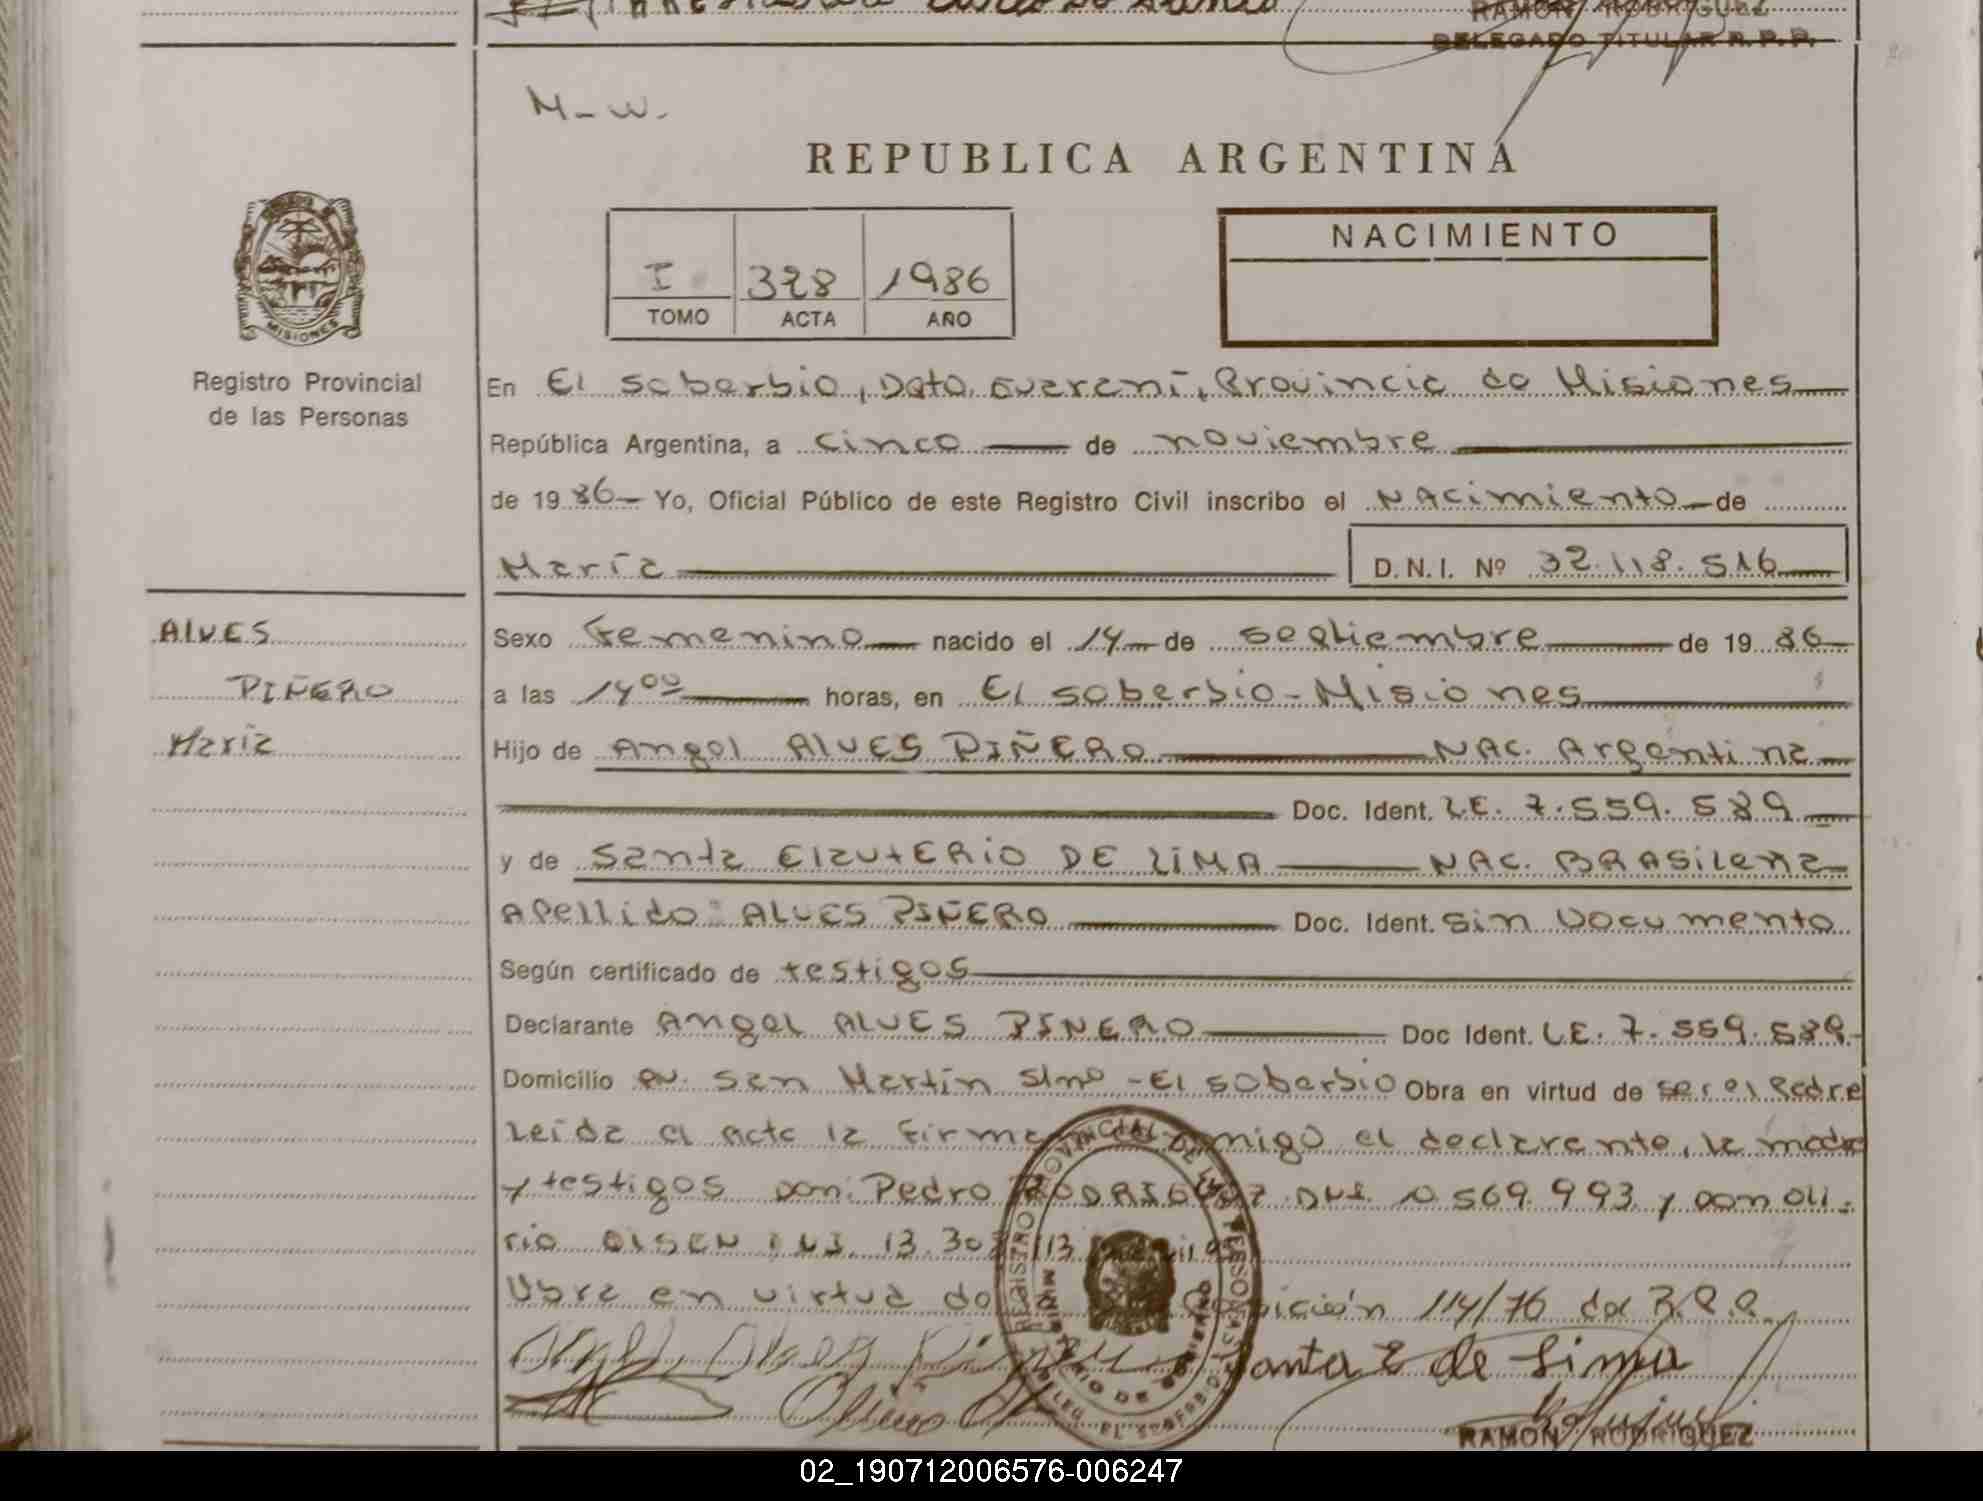 RAMON RODRIGUEZ
DELEGADO TITULAR R.P.P.
M-W.
REPUBLICA ARGENTINA
NACIMIENTO
I 328 1986
TOMO ACTA AÑO
MISIONES
Registro Provincial
de las Personas
En El soberbio, Dpto. Guaraní, Provincia de Misiones
República Argentina, a cinco de noviembre
de 1986 Yo, Oficial Público de este Registro Civil inscribo el Nacimiento de
María D.N.I. Nº 32.118.516
ALVES
PIÑERO
María
Sexo Femenino nacido el 14 de septiembre de 1986
a las 14ºº horas, en El soberbio - Misiones
Hijo de Angel ALVES PIÑERO NAC. Argentina
Doc. Ident. L.E. 7.559.589
y de Santa ElEutERiO DE LiMA NAC. BRASileña
Apellido: ALVES PIÑERO Doc. Ident. sin Documento
Según certificado de testigos
Declarante Angel ALVES PIÑERO Doc Ident. L.E. 7.559.589
Domicilio av. San Martín s/nº - El soberbio Obra en virtud de ser el Padre
Leída el acta la firma conmigo el declarante, la madre
y testigos Don: Pedro RODRIGUEZ DNI. 10.569.993 y Don Oli-
rio OLSEN DNI. 13.30 113
Obra en virtud de Disposición 114/76 del R.P.P.
Angel Alves Piñero Santa E de Lima
RAMON RODRIGUEZ
REGISTRO PROVINCIAL DE LAS PERSONAS
MINISTERIO DE GOBIERNO
DELEG. EL SOBERBIO
02_190712006576-006247